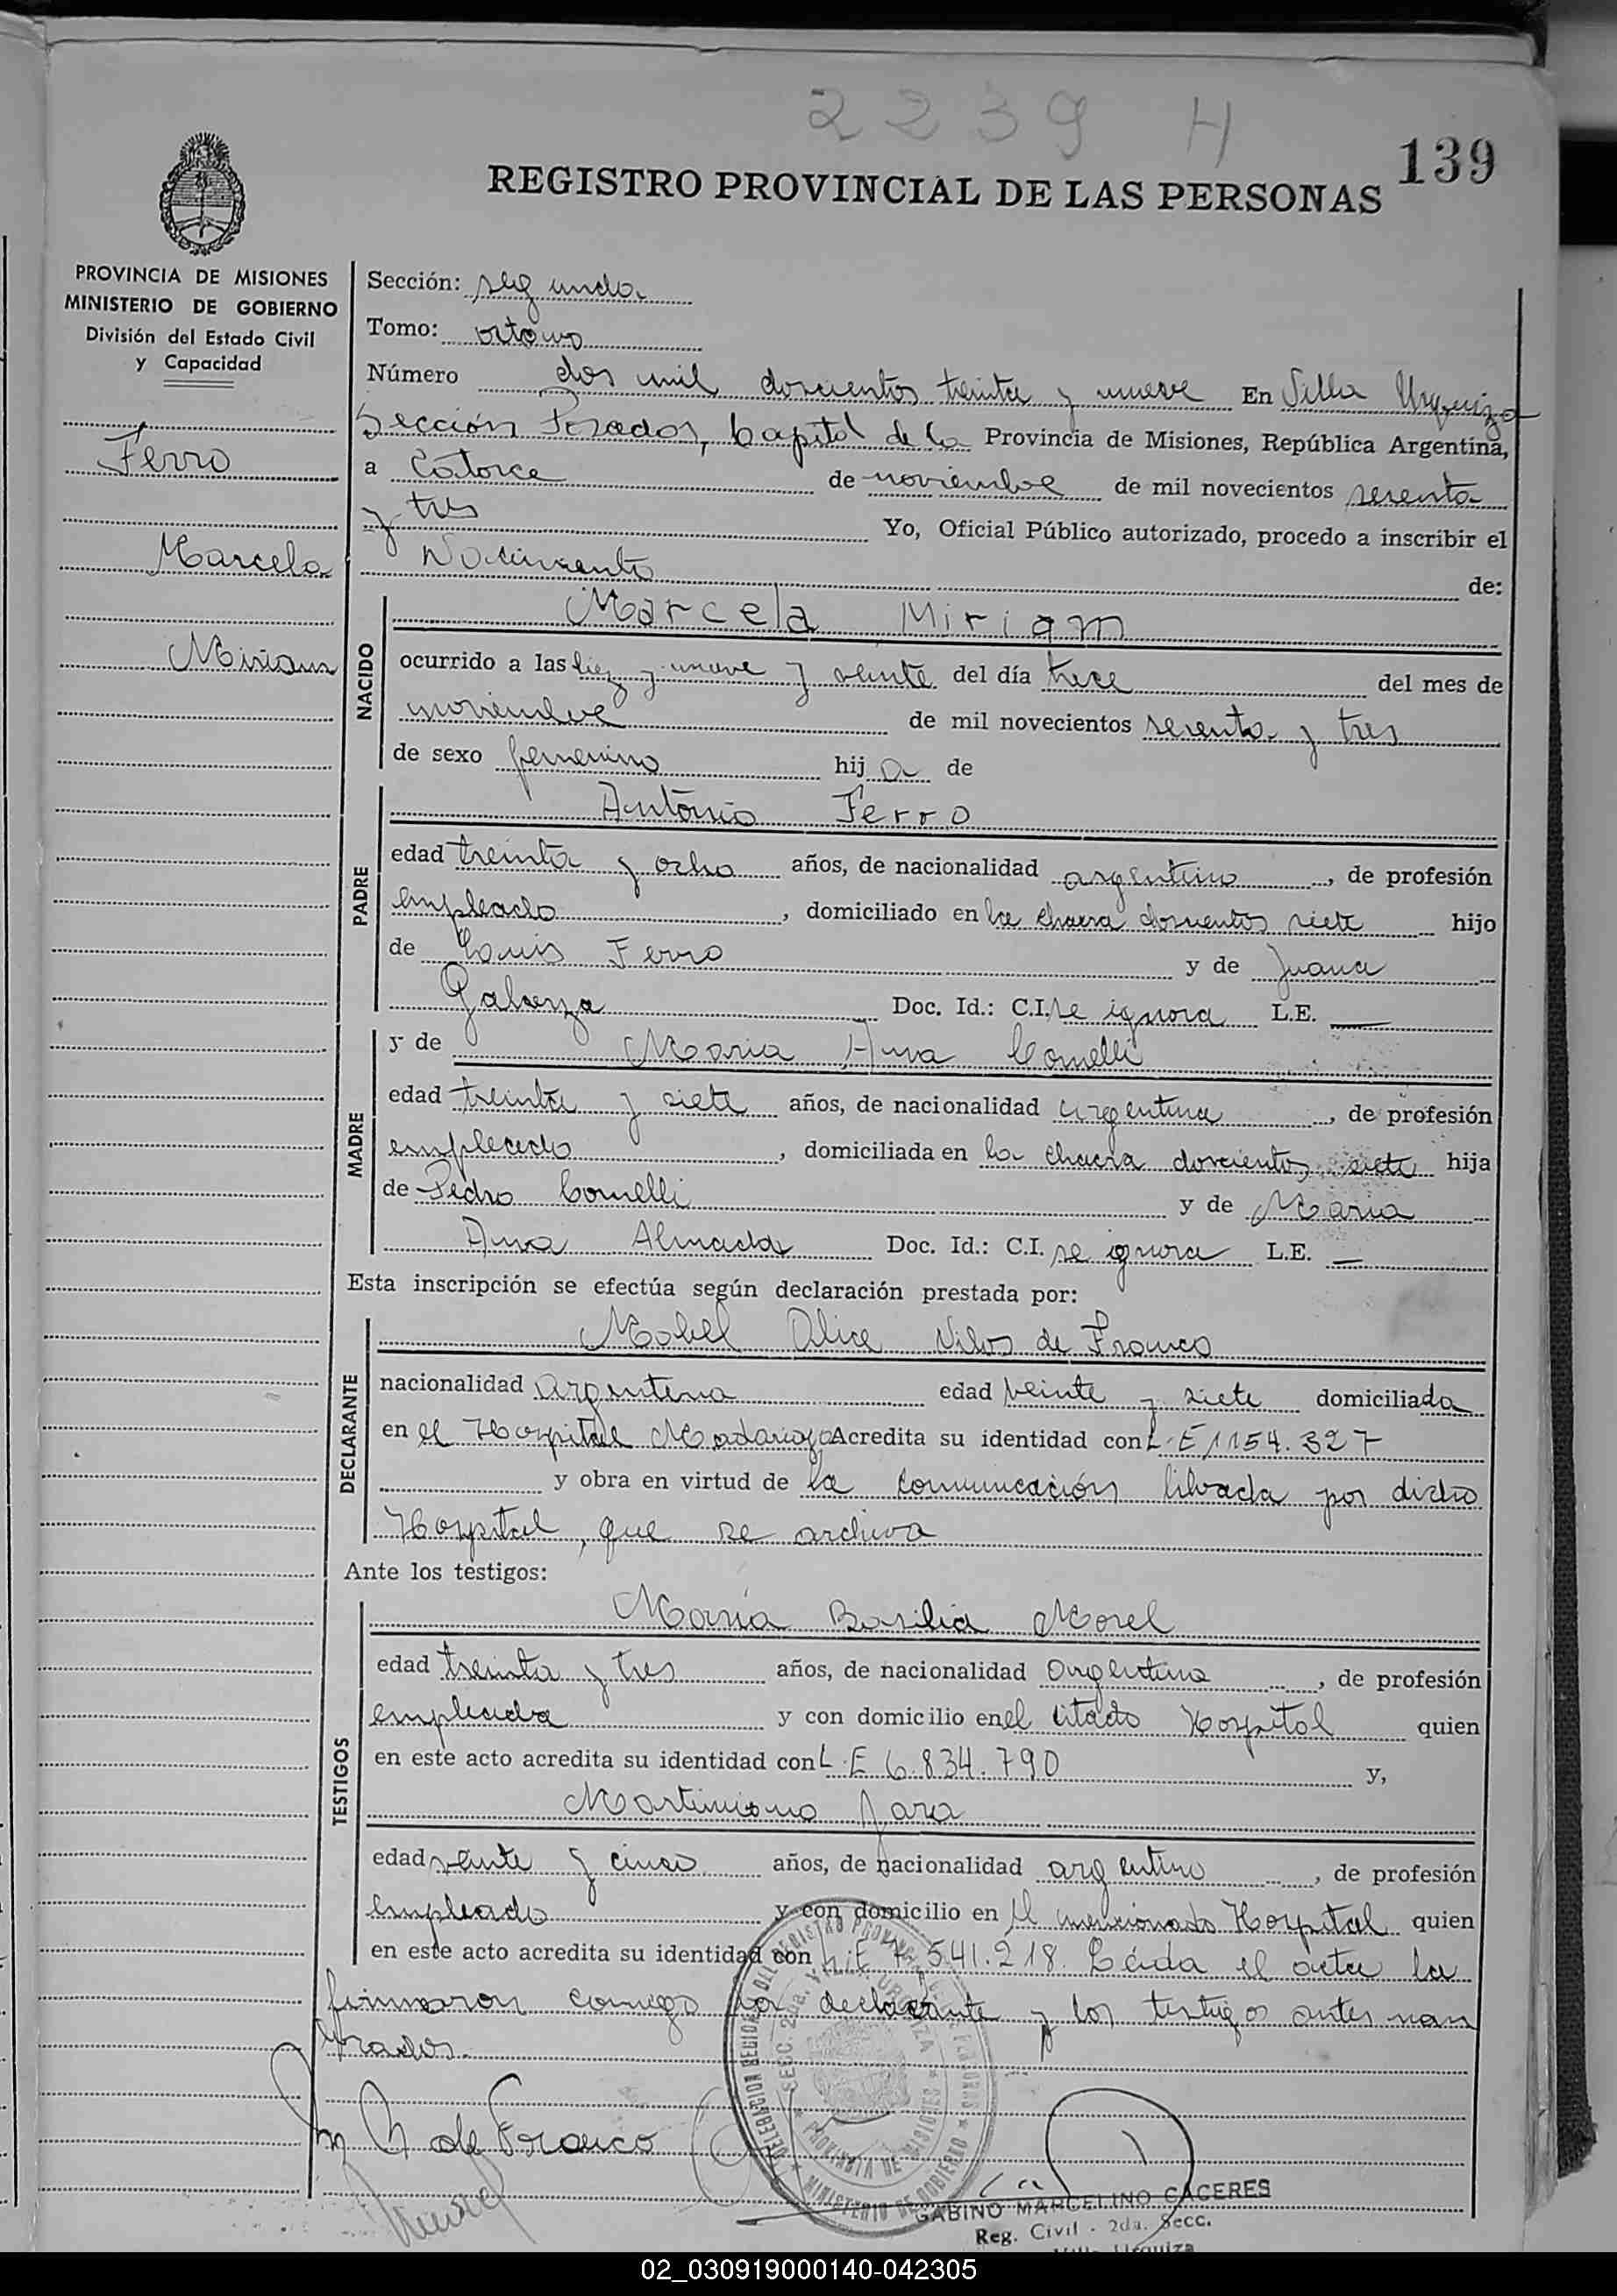 2239 H
139
REGISTRO PROVINCIAL DE LAS PERSONAS
PROVINCIA DE MISIONES
MINISTERIO DE GOBIERNO
División del Estado Civil
y Capacidad
Ferro
Marcela
Miriam
Sección: segunda
Tomo: octavo
Número dos mil doscientos treinta y nueve En Villa Urquiza
Sección Posadas, Capital de la Provincia de Misiones, República Argentina,
a catorce de noviembre de mil novecientos sesenta
y tres Yo, Oficial Público autorizado, procedo a inscribir el
Nacimiento de:
NACIDO
Marcela Miriam
ocurrido a las diez y nueve y veinte del día trece del mes de
noviembre de mil novecientos sesenta y tres
de sexo femenino hija de
PADRE
Antonio Ferro
edad treinta y ocho años, de nacionalidad argentino, de profesión
empleado, domiciliado en la chacra doscientos siete hijo
de Luis Ferro y de Juana
Galarza Doc. Id.: C.I. se ignora L.E. —
MADRE
y de Maria Ana Comelli
edad treinta y siete años, de nacionalidad argentina, de profesión
empleada, domiciliada en la chacra doscientos siete hija
de Pedro Comelli y de Maria
Ana Almada Doc. Id.: C.I. se ignora L.E. —
Esta inscripción se efectúa según declaración prestada por:
DECLARANTE
Mabel Alice de Franco
nacionalidad argentina edad veinte y siete domiciliada
en el Hospital Madariaga Acredita su identidad con L.E 1154.327
y obra en virtud de la comunicación librada por dicho
Hospital, que se archiva
Ante los testigos:
TESTIGOS
María Basilia Morel
edad treinta y tres años, de nacionalidad argentina, de profesión
empleada y con domicilio en el citado Hospital quien
en este acto acredita su identidad con L.E 6.834.790 y,
Martiniano Jara
edad veinte y cinco años, de nacionalidad argentino, de profesión
empleado y con domicilio en el mencionado Hospital quien
en este acto acredita su identidad con 7.541.218. Leída el acta la
firmaron conmigo la declarante y los testigos antes nom
brados.
de Franco
DELEGACION REGISTRO PROVINCIAL PERSONAS
SECC. 2da. V. URQUIZA
PROVINCIA DE MISIONES
MINISTERIO DE GOBIERNO
GABINO MARCELINO CACERES
Reg. Civil - 2da. Secc.
Villa Urquiza
02_030919000140-042305